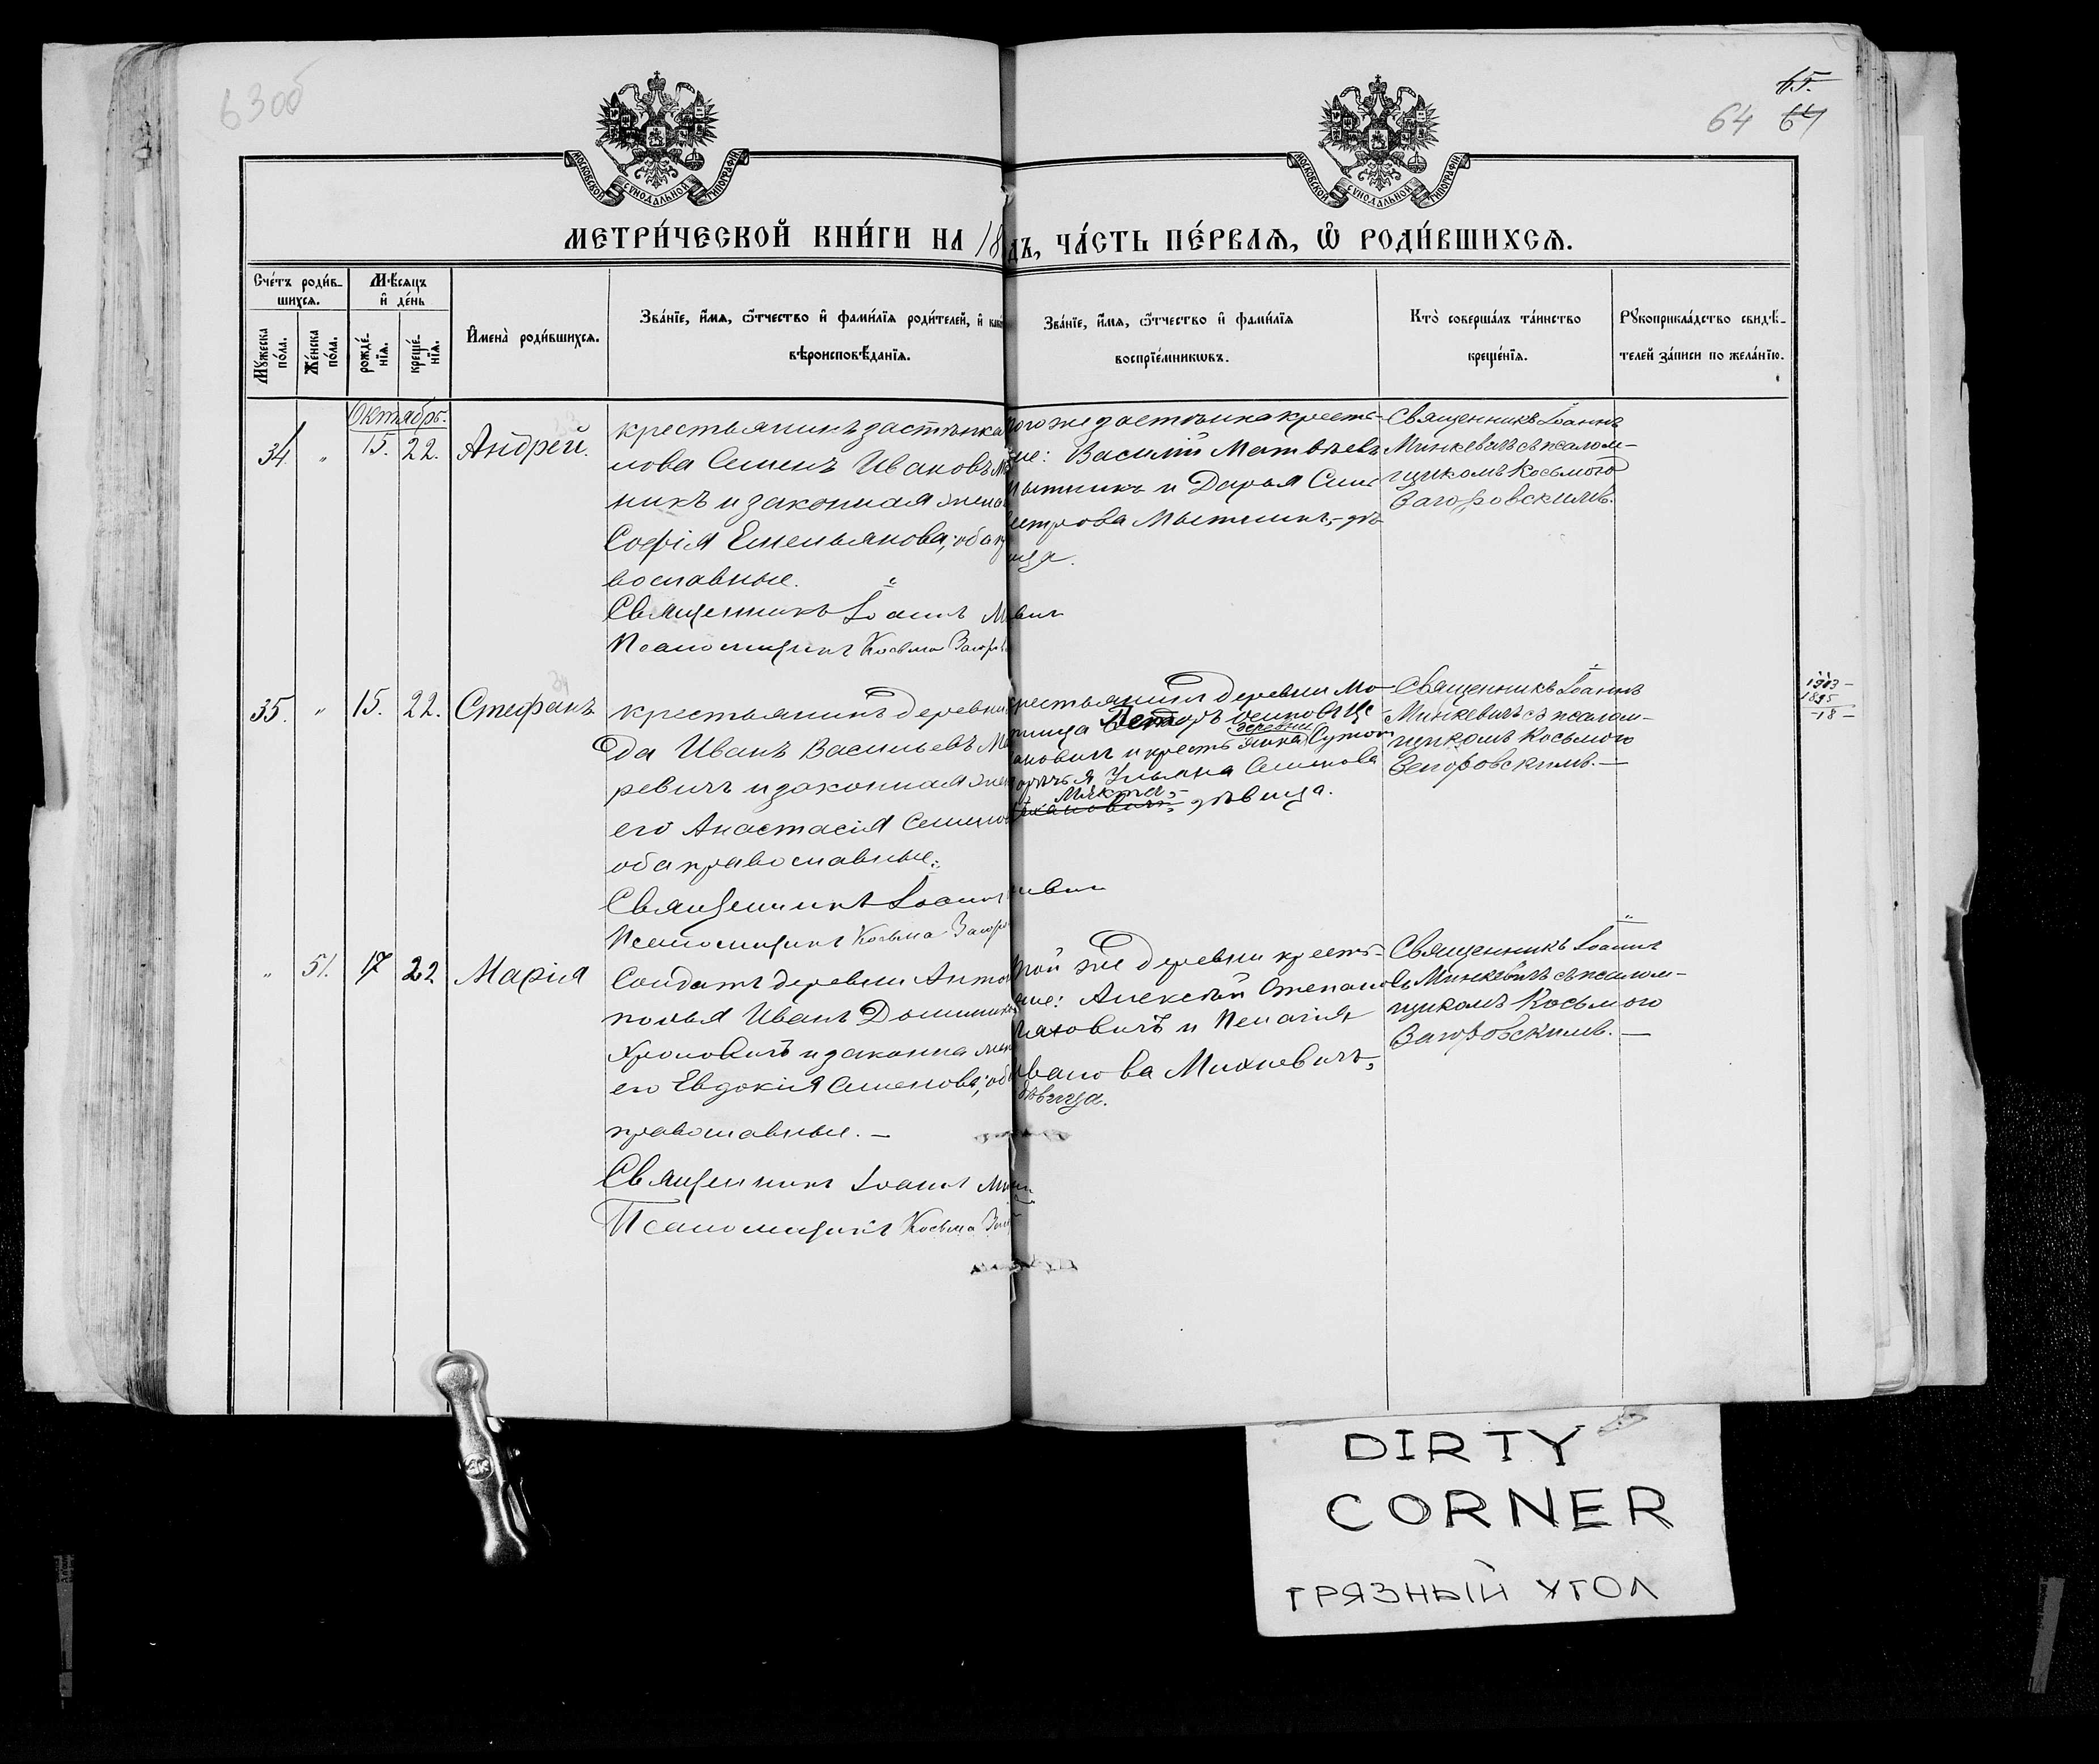 63об
65.
64 64
МОСКОВСКОЙ СѴНОДАЛЬНОЙ ТИПОГРАФІИ
МОСКОВСКОЙ СѴНОДАЛЬНОЙ ТИПОГРАФІИ
МЕТРИ́ЧЕСКОЙ КНИ́ГИ НА 18
дъ, ЧА́СТЬ ПЕ́РВАѦ, Ѡ҆ РОДИ́ВШИХСѦ.
Сче́тъ роди́в-
шихсѧ.
Мѣ́сѧцъ
и҆ де́нь
Мꙋ́жеска по́ла.
Же́нска по́ла.
рожде́-нїѧ.
креще́-нїѧ.
И҆мена̀ роди́вшихсѧ.
Зва́нїе, и҆́мѧ, ѻ҆́тчество и҆ фами́лїѧ роди́телей, и҆
вѣроисповѣ́данїѧ.
Зва́нїе, и҆́мѧ, ѻ҆́тчество и҆ фами́лїѧ
воспрїе́мникѡвъ.
Кто̀ соверша́лъ та́инство
креще́нїѧ.
Рꙋкоприкла́дство свидѣ́-
телей за́писи по жела́нїю.
Октябрь.
34. " 15. 22. Андрей.
крестьянинъ застѣнка
нова Семенъ Ивановъ
никъ и законная жена
Софія Емельянова; оба
вославные.
Священникъ Іоаннъ
Псаломщикъ Косьма
того же застѣнка кресть-
не: Василій Матвѣевъ
Мытникъ и Дарья Силь
вестрова Мытникъ, дѣ
вица.
вичъ
Священникъ Іоаннъ
Минкевичъ съ псалом-
щикомъ Косьмою
Загоровскимъ.
35. " 15. 22. Стефанъ
крестьянинъ деревни
да Иванъ Васильевъ
ревичъ и законная жена
его Анастасія Семено
оба православные.
Священникъ Іоаннъ
Псаломщикъ Косьма
крестьянинъ деревни Мо-
Петръ Осиповъ
ановичъ и кресть янка деревни
Ульяна Семенова
дѣвица.
Священникъ Іоаннъ
Минкевичъ съ псалом-
щикомъ Косьмою
Загоровскимъ. —
1913 —
1895
— 18 —
" 51. 17 22. Марія
Солдатъ деревни Анто
полья Иванъ
и законна жен
его Евдокія Семенова; об
православные. —
Священникъ Іоаннъ
Псаломщикъ Косьма
той же деревни кресть-
яне: Алексѣй Степановъ
и Пелагія
Иванова Михневичъ,
дѣвица.
Священникъ Іоаннъ
Минкевичъ съ псалом-
щикомъ Косьмою
Загоровскимъ. —
DIRTY
CORNER
ГРЯЗНЫЙ УГОЛ